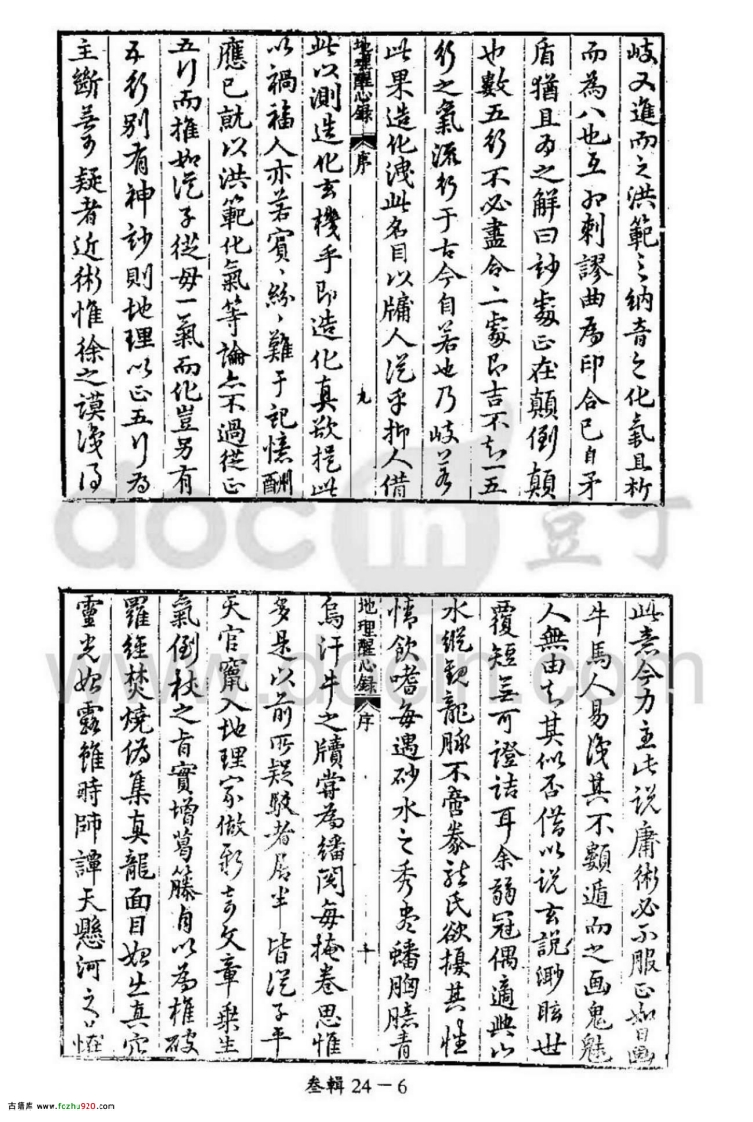 岐又進而之洪範之納音之化氣且析
而為八也互相刺謬曲為印合已自矛
盾猶且為之解曰妙處正在顛倒顛
也數五行不必盡合二處即吉不知一五
行之氣流行于古今自若也乃岐
此果造化洩此名目以牖人從乎抑人借
地理醒心錄 序 九
此以測造化玄機乎即造化真欲提此
以禍福人亦若賓、紛、難于記憶酬
應已就以洪範化氣等論亦不過從正
五行而推如從子從母一氣而化豈另有
五行別有神妙則地理以正五行為
主斷無可疑者近術惟徐之謨淺得
此意今力主此說庸術必不服正如日畫
牛馬人易淺其不類遁而之画鬼魅
人無由知其似否借以說玄說渺眩世
覆短無可證詰耳余弱冠偶適典山
水縱觀龍脉不啻豢龍氏欲擾其性
情飲嗜每遇砂水之秀蟠胸臆青
地理醒心錄 序 十
烏汗牛之牘嘗為繙閱每掩卷思惟
多是以前所疑駁者居半皆從子平
天官竄入地理家做彩奇文章乘生
氣倒杖之旨實增葛藤自以為椎破
羅經焚燒偽集真龍面目如出真穴
靈光如露雖時師譚天懸河之
叁輯 24－6
古籍库 www.fczhu920.com
docin 豆丁
www.docin.com